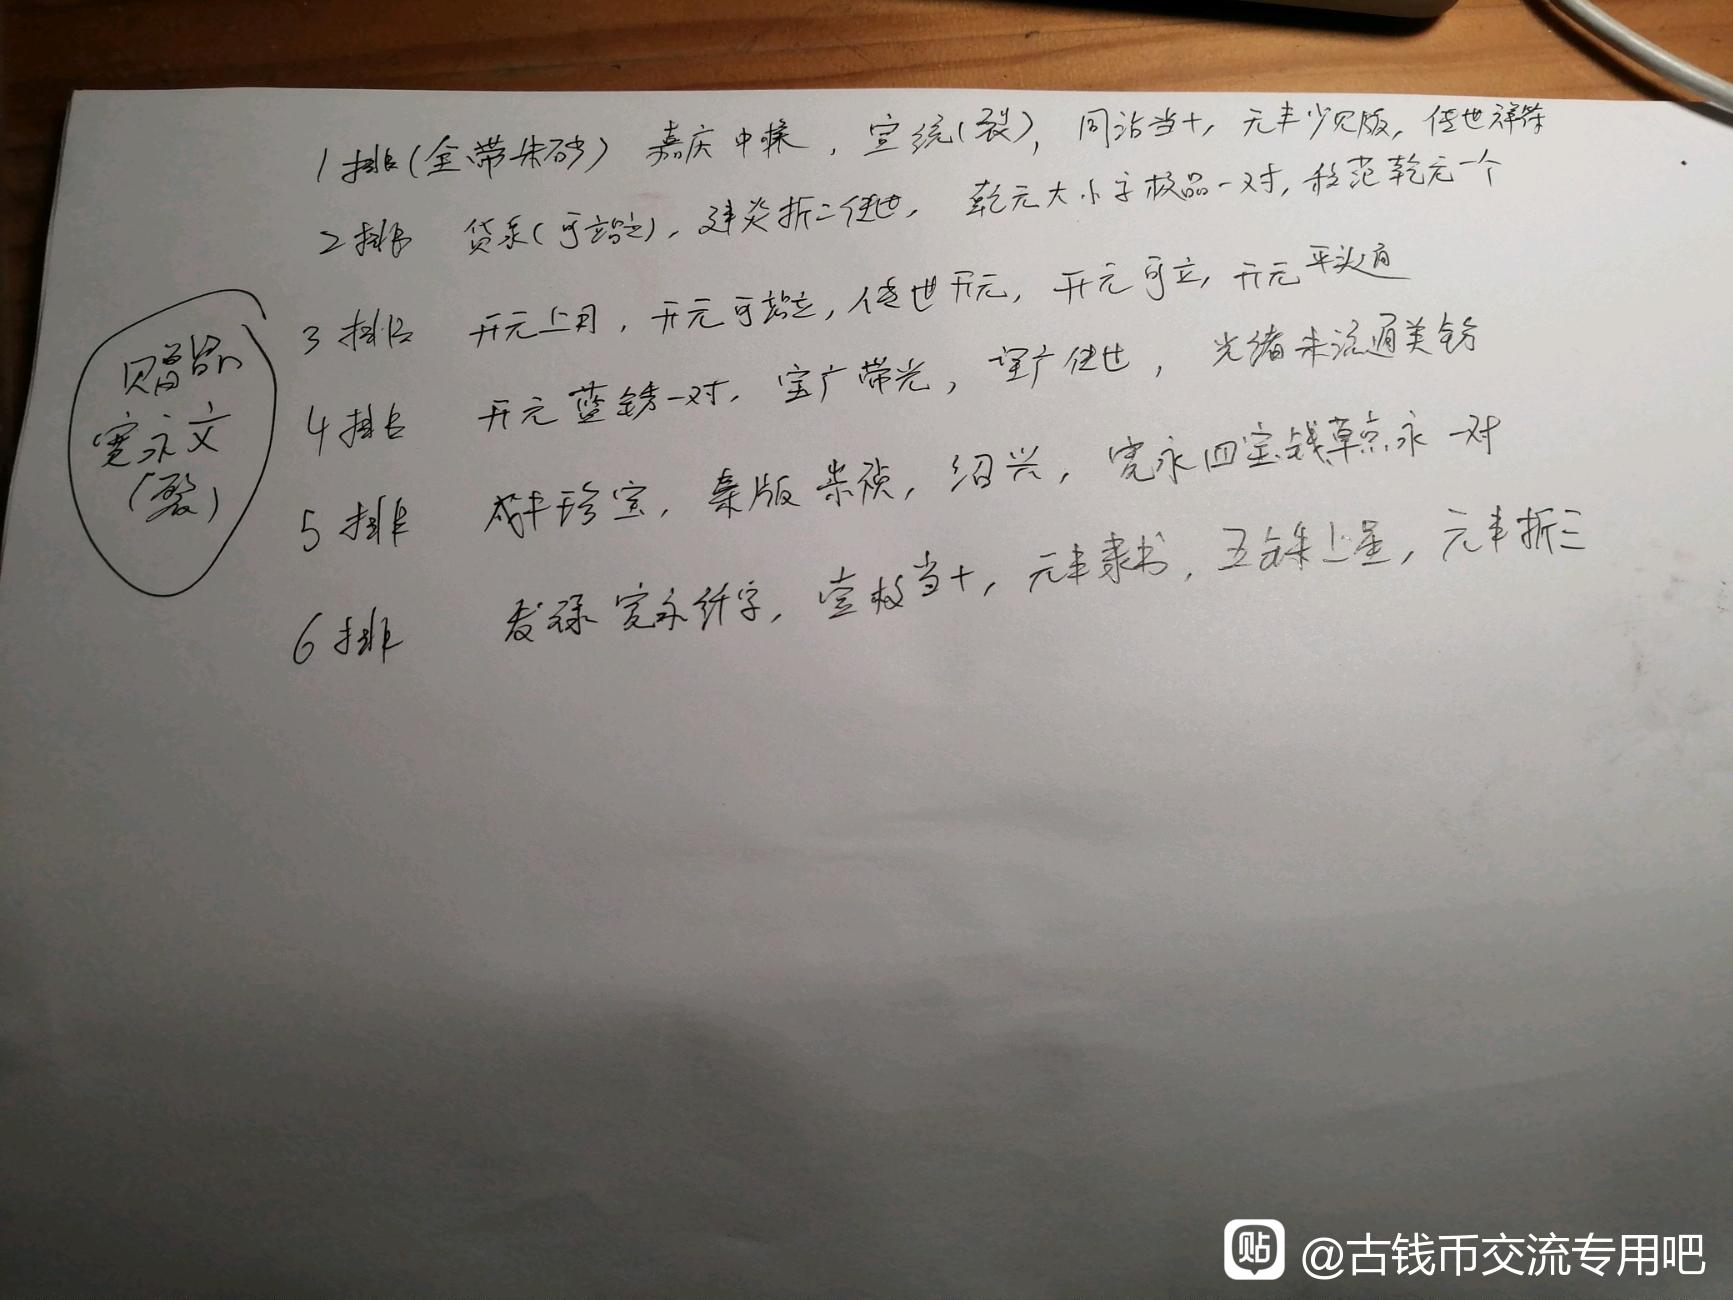 1排(全带朱砂) 嘉庆中様, 宣统(裂), 同治当十, 元丰少见版, 传世祥符
2排 货泉(可站立), 建炎折二传世, 乾元大小字极品一对, 移范乾元一个
3排 开元上月, 开元可站立, 传世开元, 开元可立, 开元平头通
4排 开元蓝锈一对, 宝广带光, 宝广传世, 光绪未流通美锈
5排 咸丰珍宝, 秦版崇祯, 绍兴, 宽永四宝钱草点永一对
6排 宽永纤字, 壹枚当十, 元丰隶书, 五铢上星, 元丰折三
赠品
宽永文
(裂)
贴 @古钱币交流专用吧